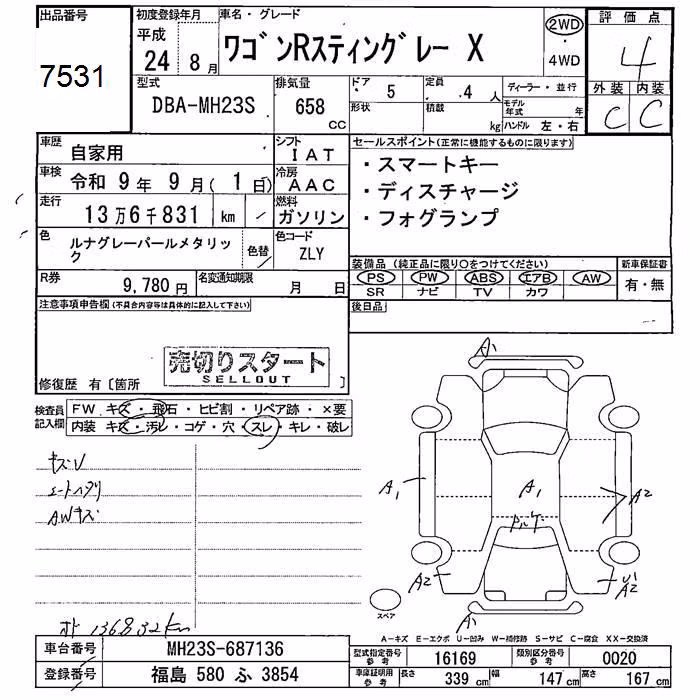 出品番号
7531
初度登録年月
平成
24 8月
車名・グレード
ワゴンRスティングレー X
2WD
・
4WD
評価点
4
外装 内装
C C
型式
DBA-MH23S
排気量
658
CC
ドア
5
定員
.4 人
形状
積載
kg
ディーラー・並行
モデル年式
年
ハンドル 左・右
車歴
自家用
シフト
IAT
車検
令和 9年 9月( 1日)
冷房
AAC
走行
13万6千831 km
燃料
ガソリン
色
ルナグレーパールメタリック
色替
色コード
ZLY
セールスポイント(正常に機能するものに限ります)
・スマートキー
・ディスチャージ
・フォグランプ
装備品 (純正品に限り○をつけてください)
PS ・ PW ・ ABS ・ エアB ・ AW
SR ナビ TV カワ
新車保証書
有・無
R券
9,780円
名変通知期限
月 日
後日品
注意事項申告欄(不具合内容等は具体的に記入して下さい)
売切りスタート
SELLOUT
修復歴 有〔箇所 〕
検査員記入欄
FW キズ・飛石・ヒビ割・リペア跡・×要
内装 キズ・汚レ・コゲ・穴・スレ・キレ・破レ
キズV
シートヘタリ
AWキズ
136832km
A1
A1
A1
A2
A2
A2
U1
A1
スペア
A-キズ E-エクボ U-凹み W-補修跡 S-サビ C-腐食 XX-交換済
車台番号
MH23S-687136
登録番号
福島 580 ふ 3854
型式指定番号
参考
16169
類別区分番号
参考
0020
車庫証明用
参考
長さ
339cm
幅
147cm
高さ
167cm